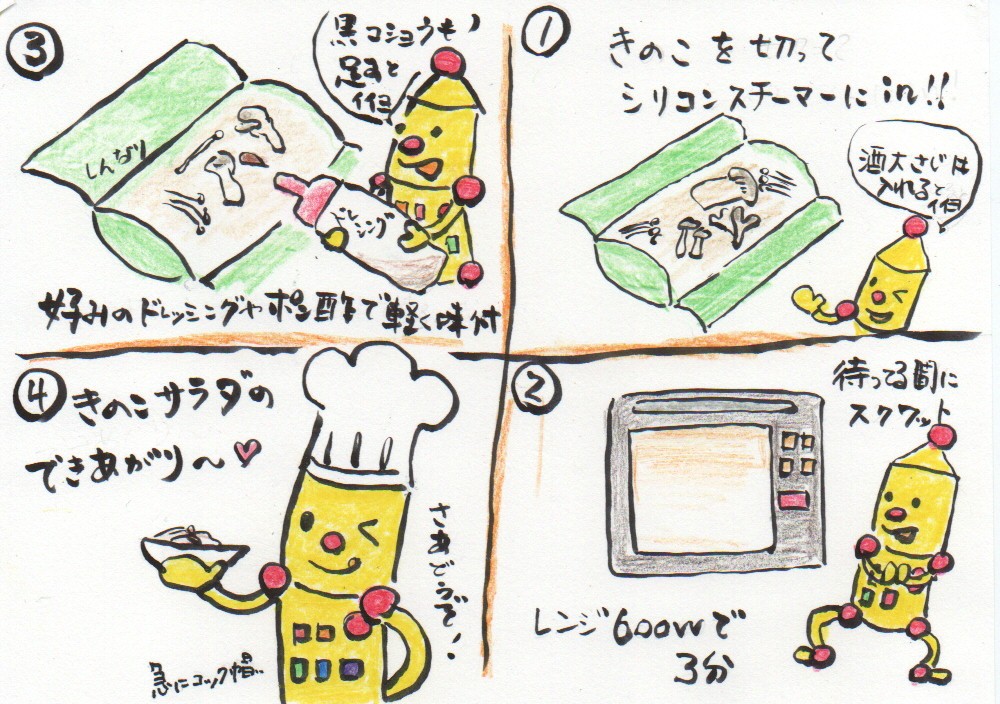 ①
きのこを切って
シリコンスチーマーにin!!
酒大さじ1杯
入れると
②
待ってる間に
スクワット
レンジ600wで
3分
③
黒コショウも
足すと
しんなり
ドレッシング
好みのドレッシングやポン酢で軽く味付
④
きのこサラダの
できあがり〜♡
さあどうぞ!
急にコック帽…